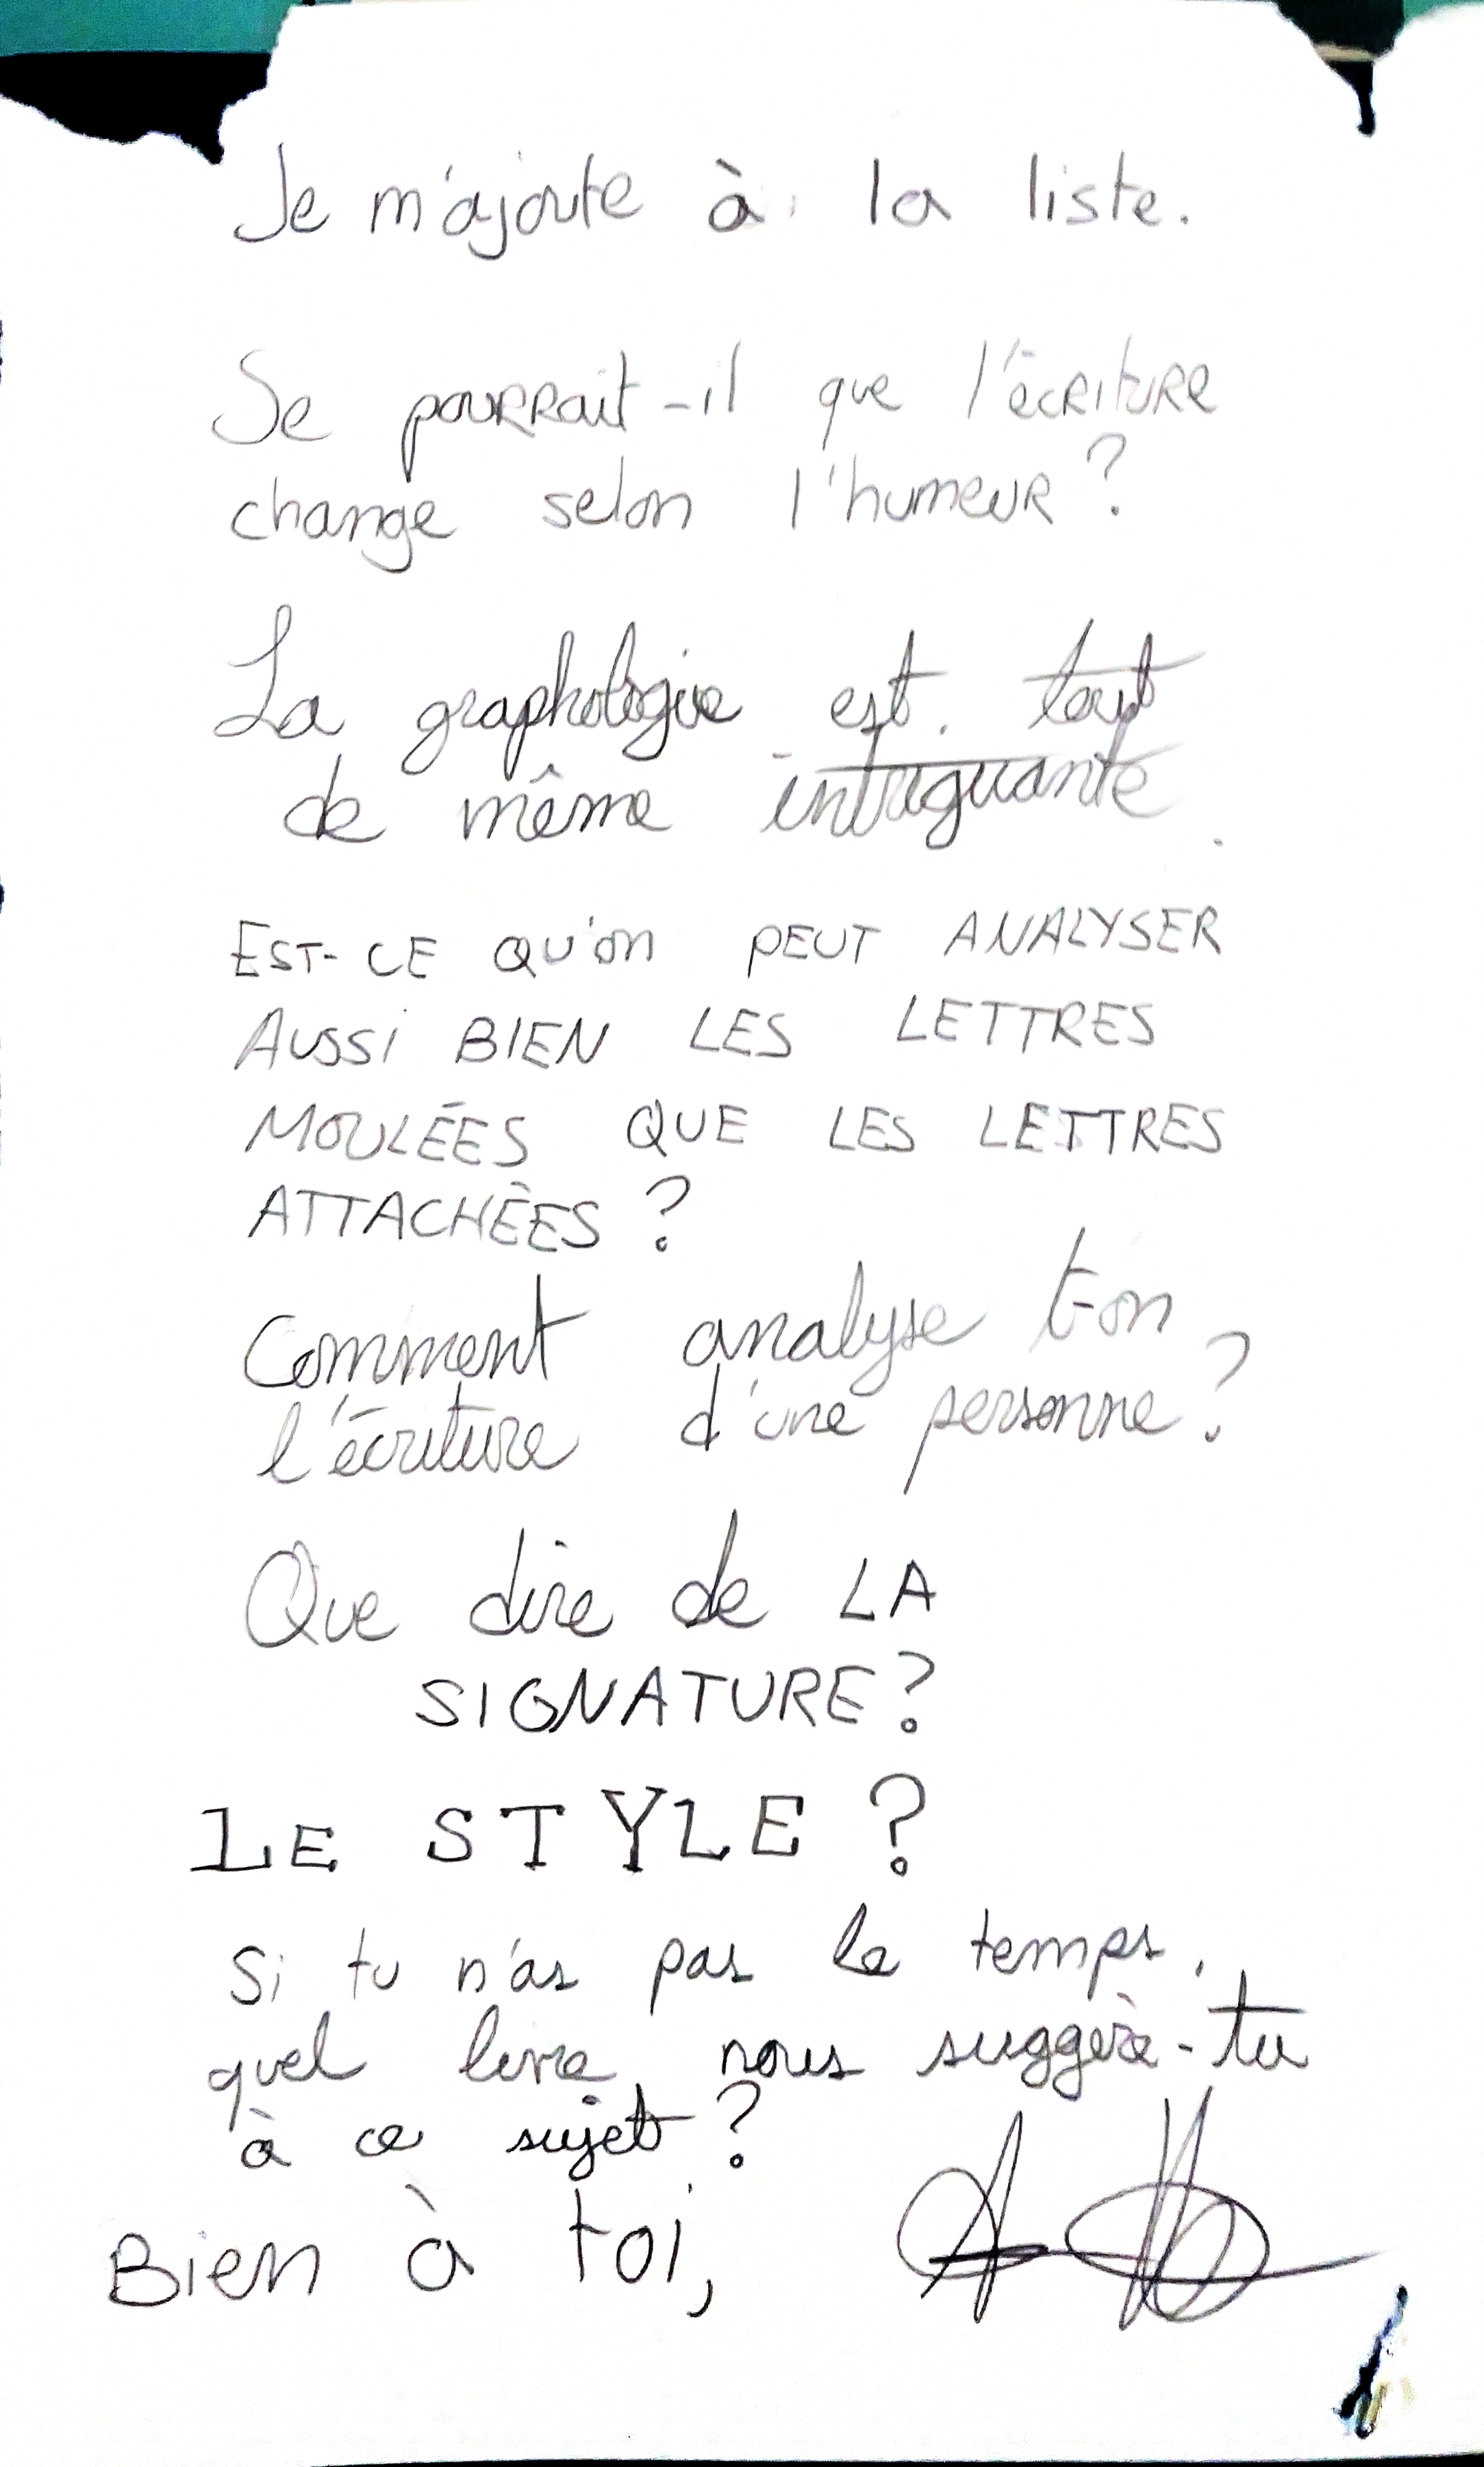 Je m'ajoute à la liste.
Se pourrait-il que l'écriture
change selon l'humeur ?
La graphologie est tout
de même intriguante.
EST-CE QU'on PEUT ANALYSER
AUSSi BIEN LES LETTRES
MOULÉES QUE LES LETTRES
ATTACHÉES ?
Comment analyse t-on
l'écriture d'une personne ?
Que dire de LA
SIGNATURE ?
LE STYLE ?
Si tu n'as pas le temps,
quel livre nous suggère-tu
à ce sujet ?
Bien à toi,